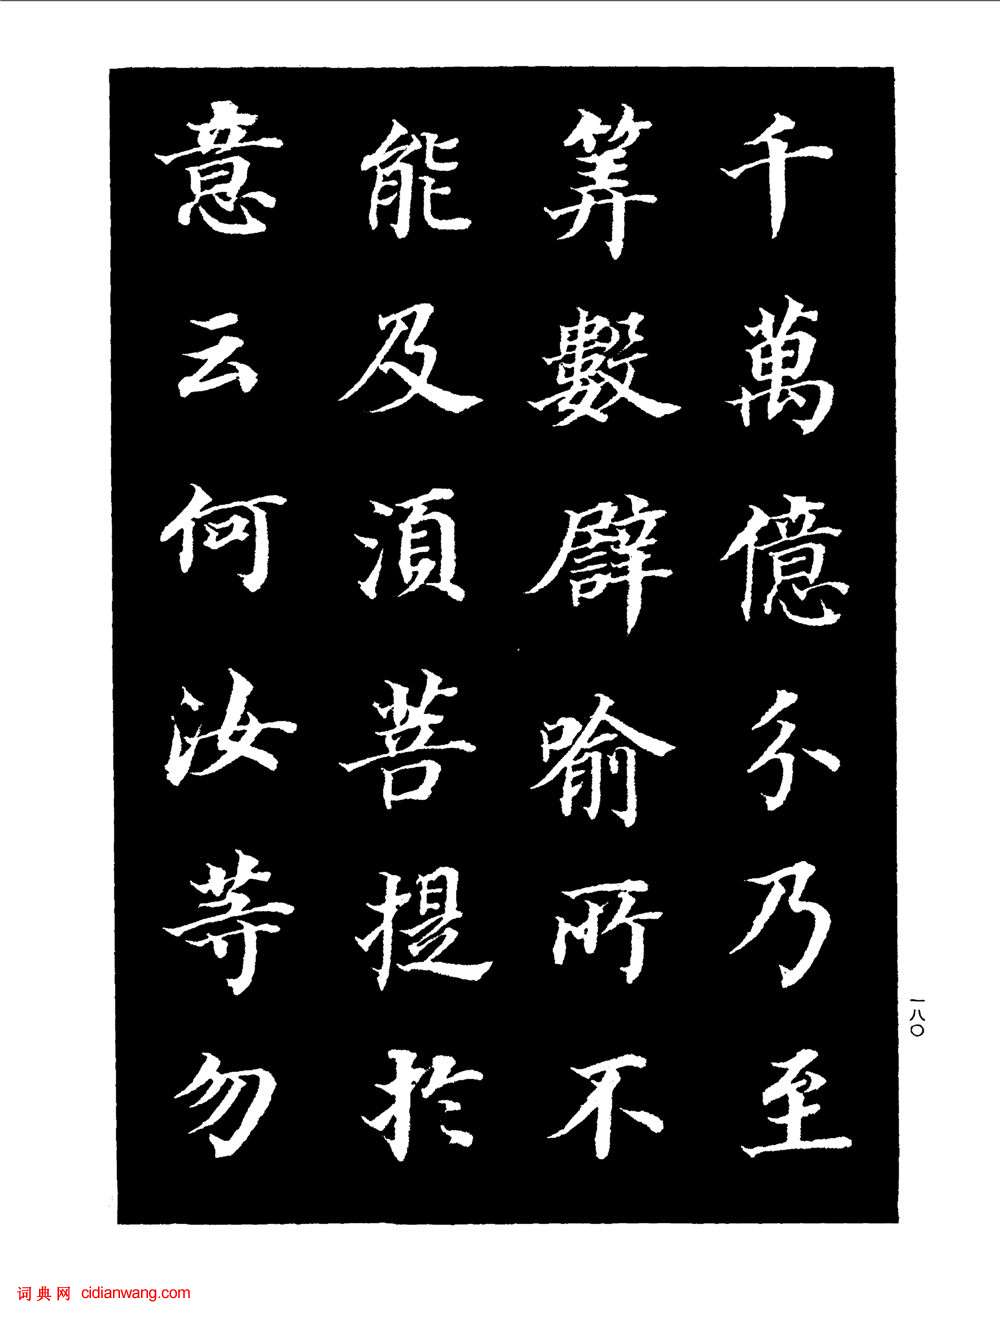 千萬億分乃至
筭數譬喻所不
能及須菩提於
意云何汝等勿
一八〇
词典网 cidianwang.com